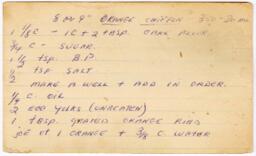 8 or 9" ORANGE CHIFFON 350°
1 1/8 C - 1C + 2 TBSP. CAKE FLOUR.
3/4 C - SUGAR.
1 1/2 tsp. B.P.
1/2 tsp SALT
MAKE A WELL + ADD IN ORDER.
1/4 C. OIL
2 EGG YOLKS (UNBEATEN)
1 TBSP. GRATED ORANGE RIND
OF 1 ORANGE + 3/8 C. WATER